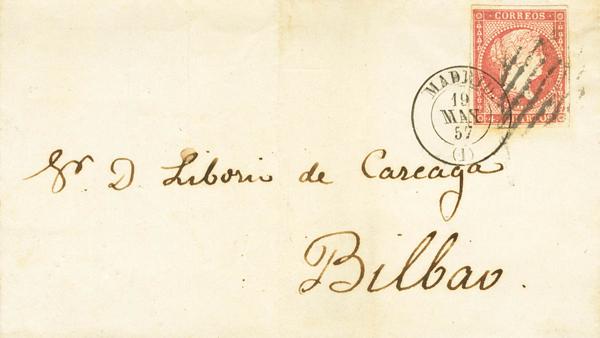 CORREOS
MADRI
19
MAY
57
(1)
CUARTOS
Sr D Liborio de Careaga
Bilbao.